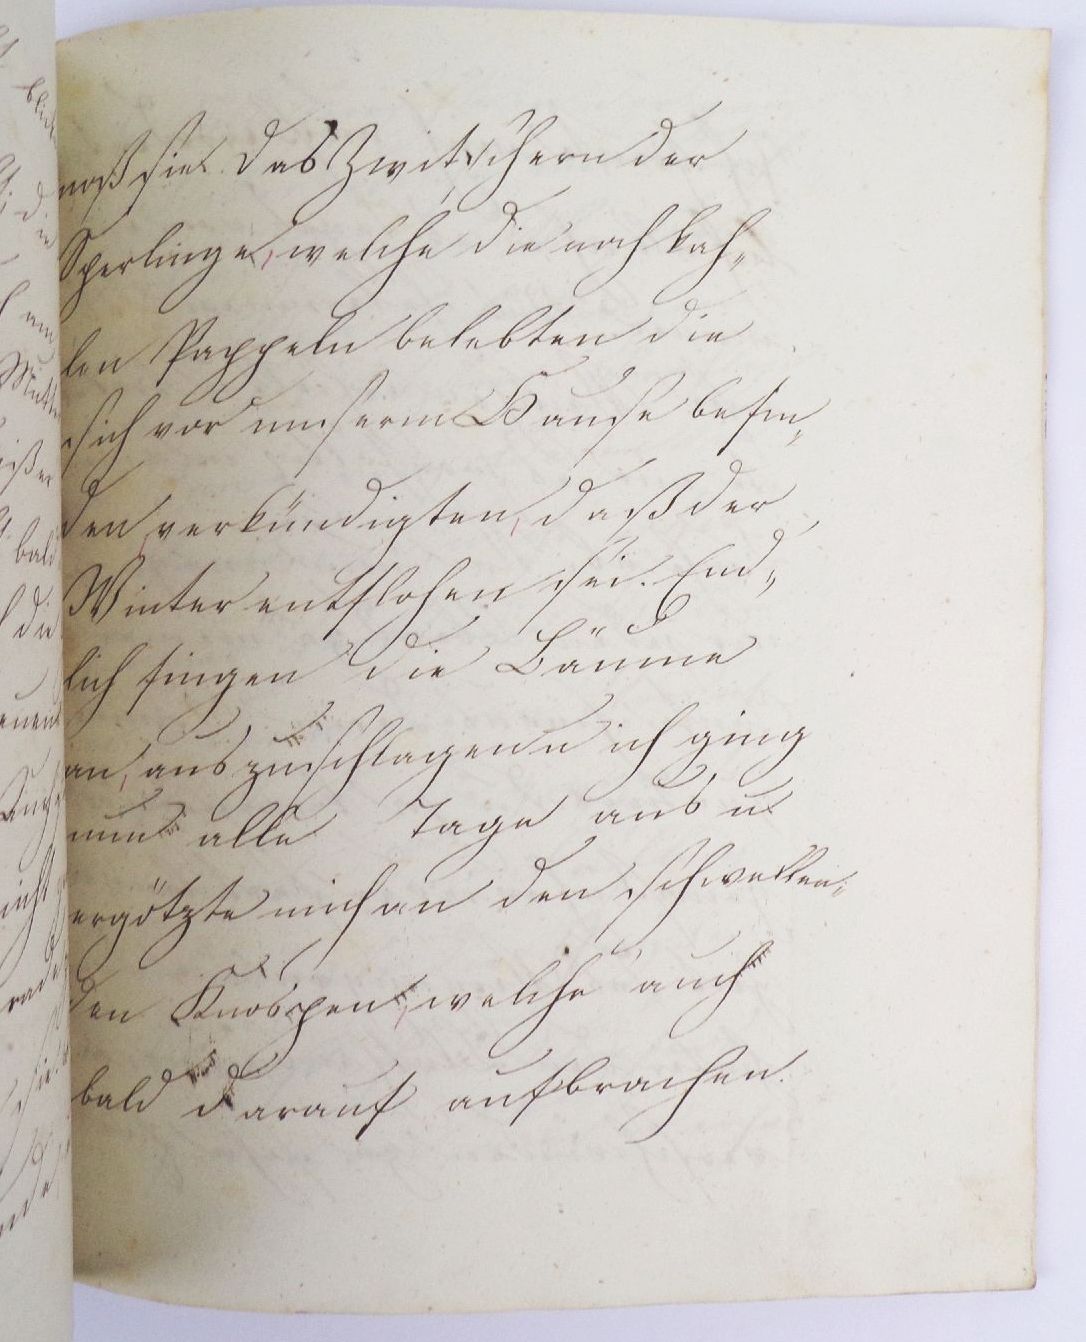 noß sie. Das Zwitschern der
Sperlinge, welche die noch kah„
len Pappeln belebten die
sich vor unserm Hause befin„
den, verkündigten, daß der
Winter entflohen sei. End„
lich fingen die Bäume
an, auszuschlagen u ich ging
nun alle Tage aus u
ergötzte mich an den schwellen„
den Knospen, welche auch
bald darauf aufbrachen.